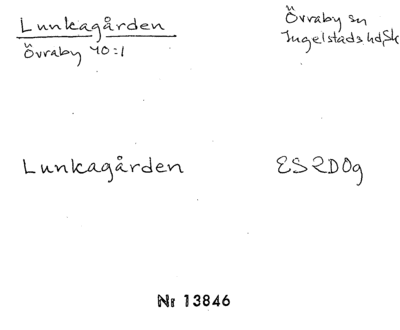 Lunkagården
Övraby 40:1
Övraby sn
Ingelstads hd, Sk
Lunkagården
ES2D0g
Nr 13846